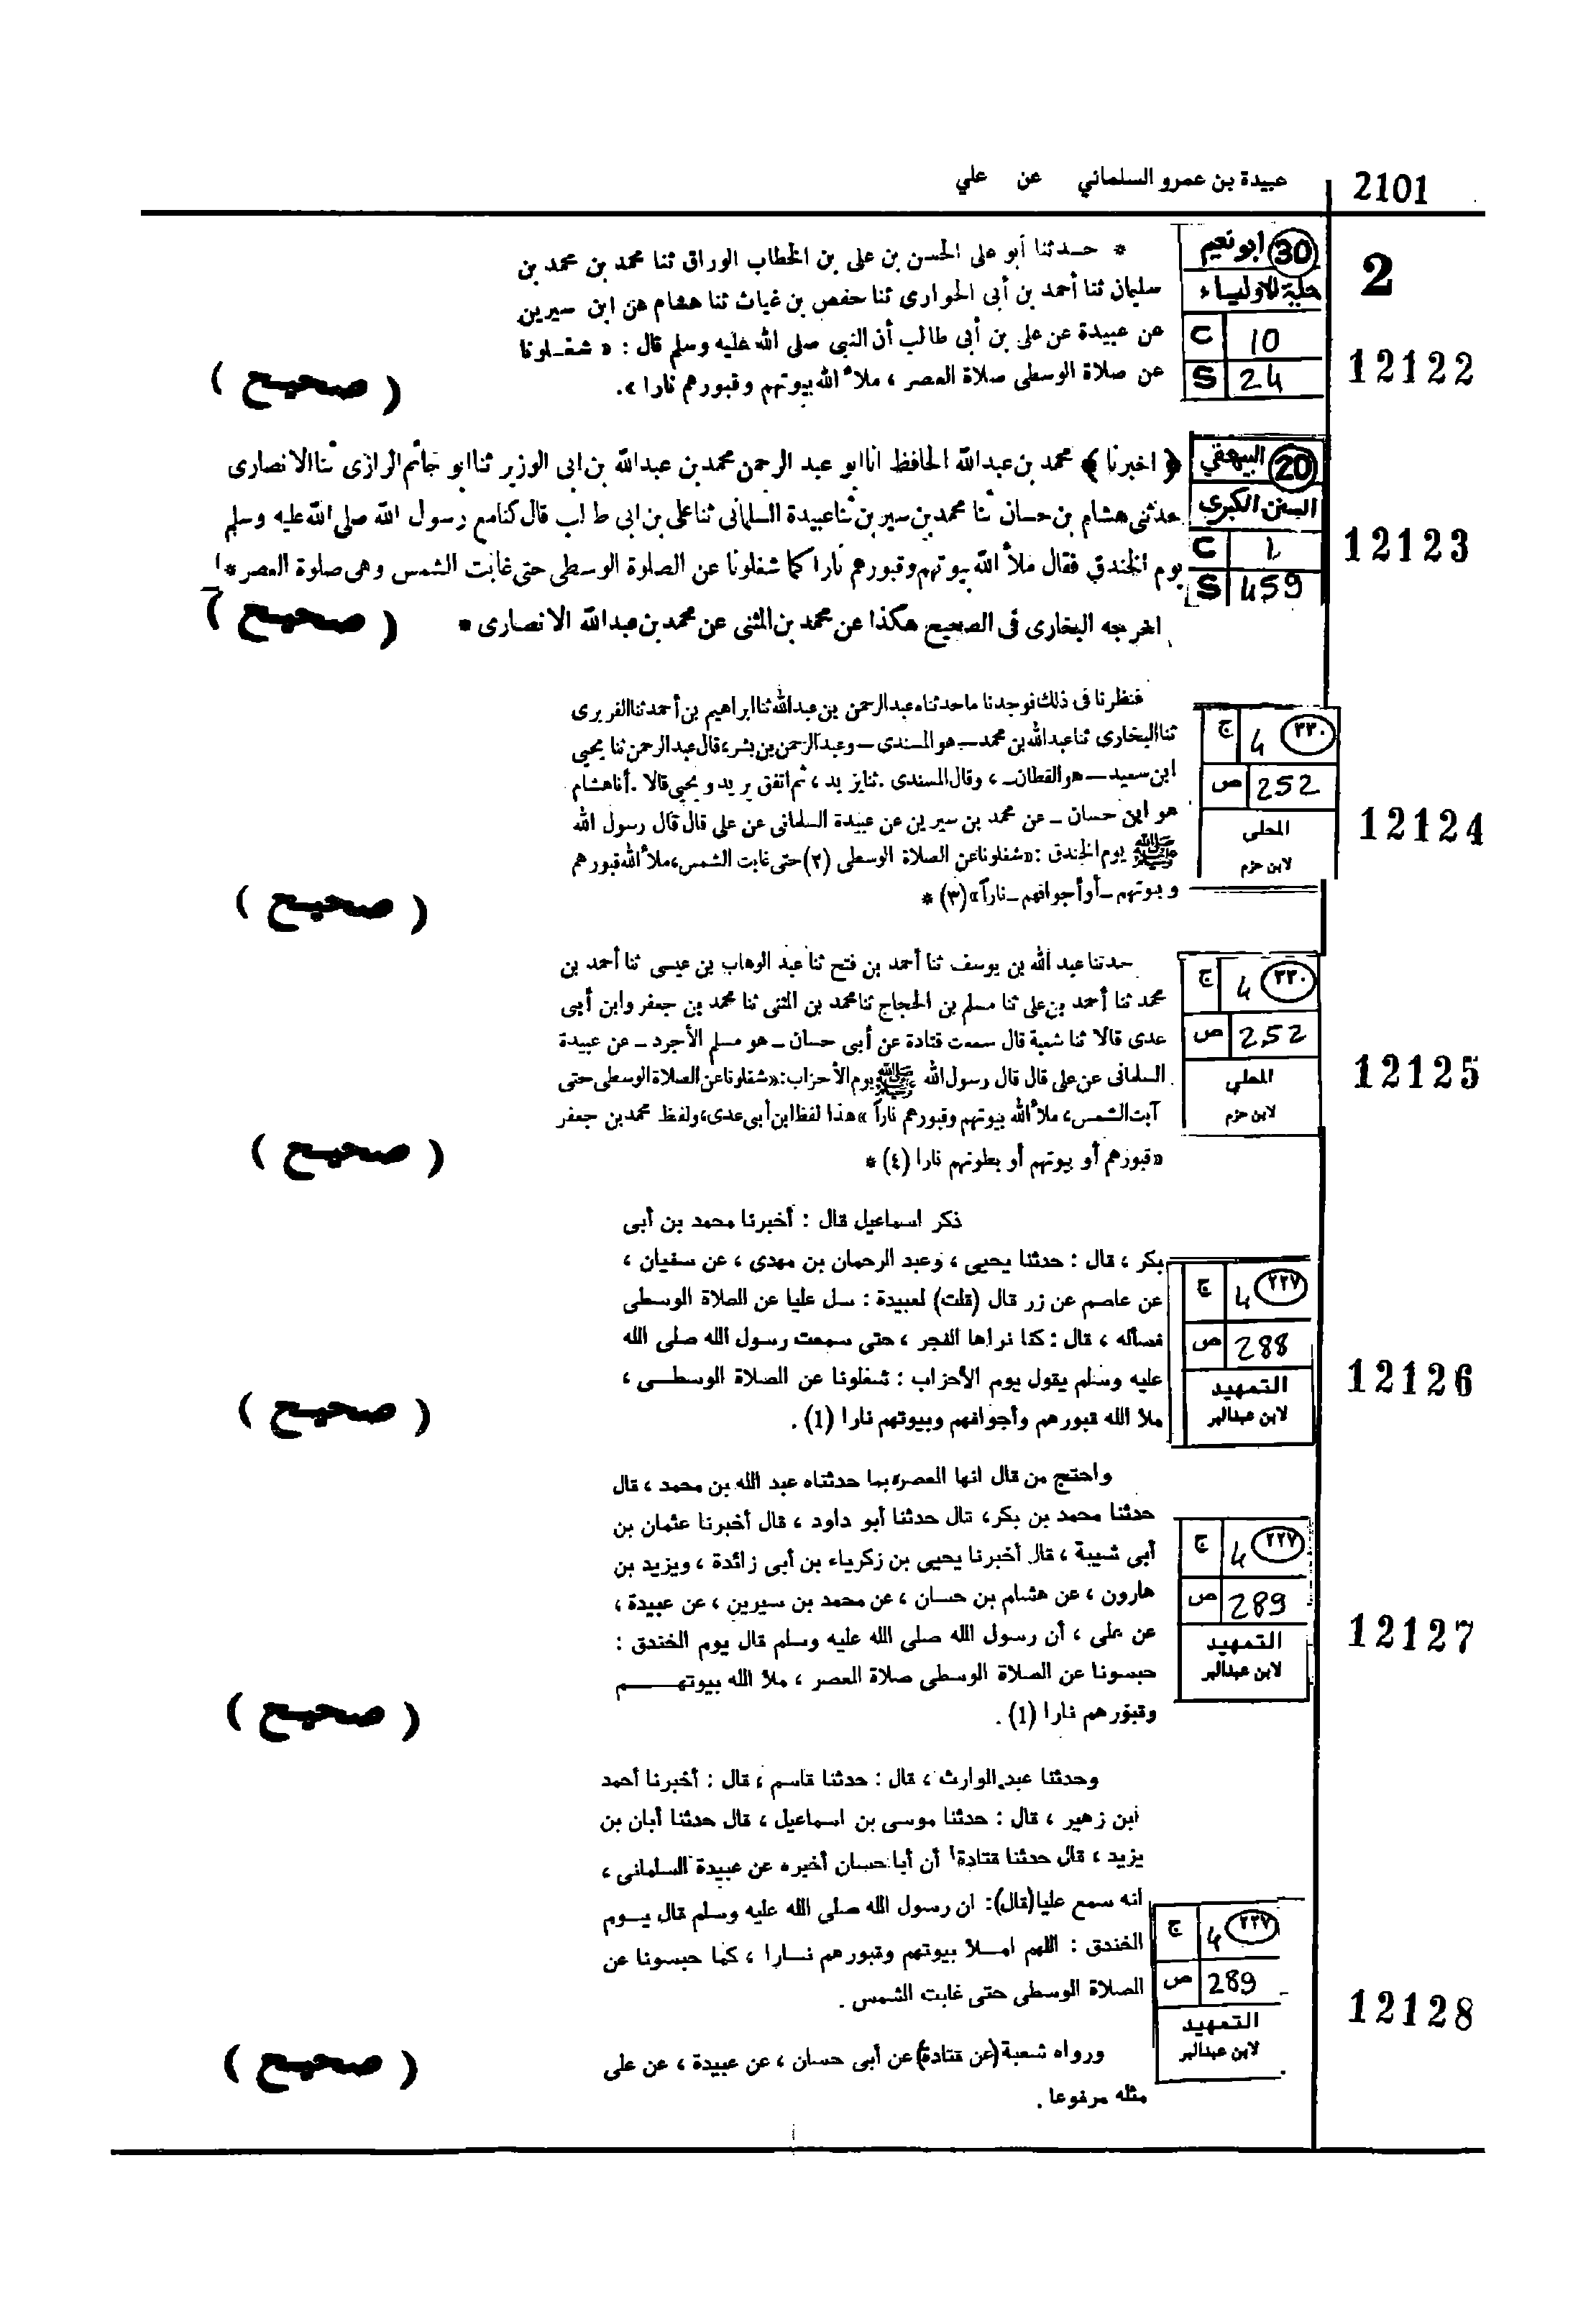 2101
عبيدة بن عمرو السلماني عن علي
2
30 ابو نعيم
حلية الاولياء
C 10
S 24
12122
* حدثنا أبو على الحسن بن على بن الخطاب الوراق ثنا محمد بن محمد بن
سليمان ثنا أحمد بن أبى الحوارى ثنا حفص بن غياث ثنا هشام عن ابن سيرين
عن عبيدة عن على بن أبى طالب أن النبى صلى الله عليه وسلم قال : « شغلونا
عن صلاة الوسطى صلاة العصر ، ملأ الله بيوتهم وقبورهم نارا ».
( صحيح )
20 البيهقي
السنن الكبرى
C 1
S 459
12123
﴿ اخبرنا ﴾ محمد بن عبدالله الحافظ انا ابو عبد الرحمن محمد بن عبدالله بن ابى الوزير ثنا ابو حاتم الرازى ثنا الانصارى
حدثنى هشام بن حسان ثنا محمد بن سيرين ثنا عبيدة السلمانى ثنا على بن ابى طالب قال كنا مع رسول الله صلى الله عليه وسلم
يوم الخندق فقال ملأ الله بيوتهم وقبورهم نارا كما شغلونا عن الصلوة الوسطى حتى غابت الشمس وهى صلوة العصر *
اخرجه البخارى فى الصحيح هكذا عن محمد بن المثنى عن محمد بن عبدالله الانصارى *
( صحيح )
٣٣٠ 4 ج
252 ص
المحلى
لابن حزم
12124
فنظرنا فى ذلك فوجدنا ما حدثناه عبد الرحمن بن عبدالله ثنا ابراهيم بن أحمد ثنا الفربرى
ثنا البخارى ثنا عبدالله بن محمد ــ هو المسندى ــ وعبد الرحمن بن بشر، قال عبد الرحمن ثنا يحيى
ابن سعيد ــ هو القطان ــ ، وقال المسندى . ثنا يزيد ، ثم اتفق يزيد ويحيى قالا . أنا هشام
هو ابن حسان ــ عن محمد بن سيرين عن عبيدة السلمانى عن على قال قال رسول الله
ﷺ يوم الخندق : «شغلونا عن الصلاة الوسطى (٢) حتى غابت الشمس، ملأ الله قبورهم
وبيوتهم ــ أو أجوافهم ــ ناراً» (٣) *
( صحيح )
٣٣٠ 4 ج
252 ص
المحلى
لابن حزم
12125
حدثنا عبد الله بن يوسف ثنا أحمد بن فتح ثنا عبد الوهاب بن عيسى ثنا أحمد بن
محمد ثنا أحمد بن على ثنا مسلم بن الحجاج ثنا محمد بن المثنى ثنا محمد بن جعفر وابن أبى
عدى قالا ثنا شعبة قال سمعت قتادة عن أبى حسان ــ هو مسلم الأجرد ــ عن عبيدة
السلمانى عن على قال قال رسول الله ﷺ يوم الأحزاب: «شغلونا عن الصلاة الوسطى حتى
آبت الشمس، ملأ الله بيوتهم وقبورهم ناراً » هذا لفظ ابن أبى عدى، ولفظ محمد بن جعفر
«قبورهم أو بيوتهم أو بطونهم نارا (٤) *
( صحيح )
٢٢٧ 4 ج
288 ص
التمهيد
لابن عبدالبر
12126
ذكر اسماعيل قال : أخبرنا محمد بن أبى
بكر ، قال : حدثنا يحيى ، وعبد الرحمان بن مهدى ، عن سفيان ،
عن عاصم عن زر قال (قلت) لعبيدة : سل عليا عن الصلاة الوسطى
فسأله ، قال : كنا نراها الفجر ، حتى سمعت رسول الله صلى الله
عليه وسلم يقول يوم الأحزاب : شغلونا عن الصلاة الوسطى ،
ملأ الله قبورهم وأجوافهم وبيوتهم نارا (1) .
( صحيح )
٢٢٧ 4 ج
289 ص
التمهيد
لابن عبدالبر
12127
واحتج من قال انها العصر، بما حدثناه عبد الله بن محمد ، قال
حدثنا محمد بن بكر، قال حدثنا أبو داود ، قال أخبرنا عثمان بن
أبى شيبة ، قال أخبرنا يحيى بن زكرياء بن أبى زائدة ، ويزيد بن
هارون ، عن هشام بن حسان ، عن محمد بن سيرين ، عن عبيدة ،
عن على ، أن رسول الله صلى الله عليه وسلم قال يوم الخندق :
حبسونا عن الصلاة الوسطى صلاة العصر ، ملأ الله بيوتهم
وقبورهم نارا (1) .
( صحيح )
٢٢٧ 4 ج
289 ص
التمهيد
لابن عبدالبر
12128
وحدثنا عبد الوارث ، قال : حدثنا قاسم ، قال : أخبرنا أحمد
ابن زهير ، قال : حدثنا موسى بن اسماعيل ، قال حدثنا أبان بن
يزيد ، قال حدثنا قتادة أن أبا حسان أخبره عن عبيدة السلمانى ،
أنه سمع عليا (قال): ان رسول الله صلى الله عليه وسلم قال يوم
الخندق : اللهم املأ بيوتهم وقبورهم نارا ، كما حبسونا عن
الصلاة الوسطى حتى غابت الشمس .
ورواه شعبة (عن قتادة) عن أبى حسان ، عن عبيدة ، عن على
مثله مرفوعا .
( صحيح )